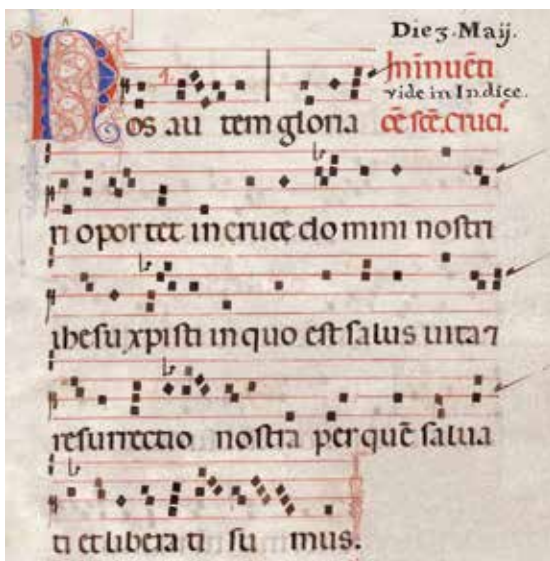 Die 3. Maij.
In ĩnuẽti
vide in Indice.
Nos au tem gloria
cẽ scẽ. cruci.
ri opor tet in cruce do mini nostri
ihesu xpisti in quo est salus uita ⁊
resurrectio nostra per quẽ salua
ti et libera ti su mus.